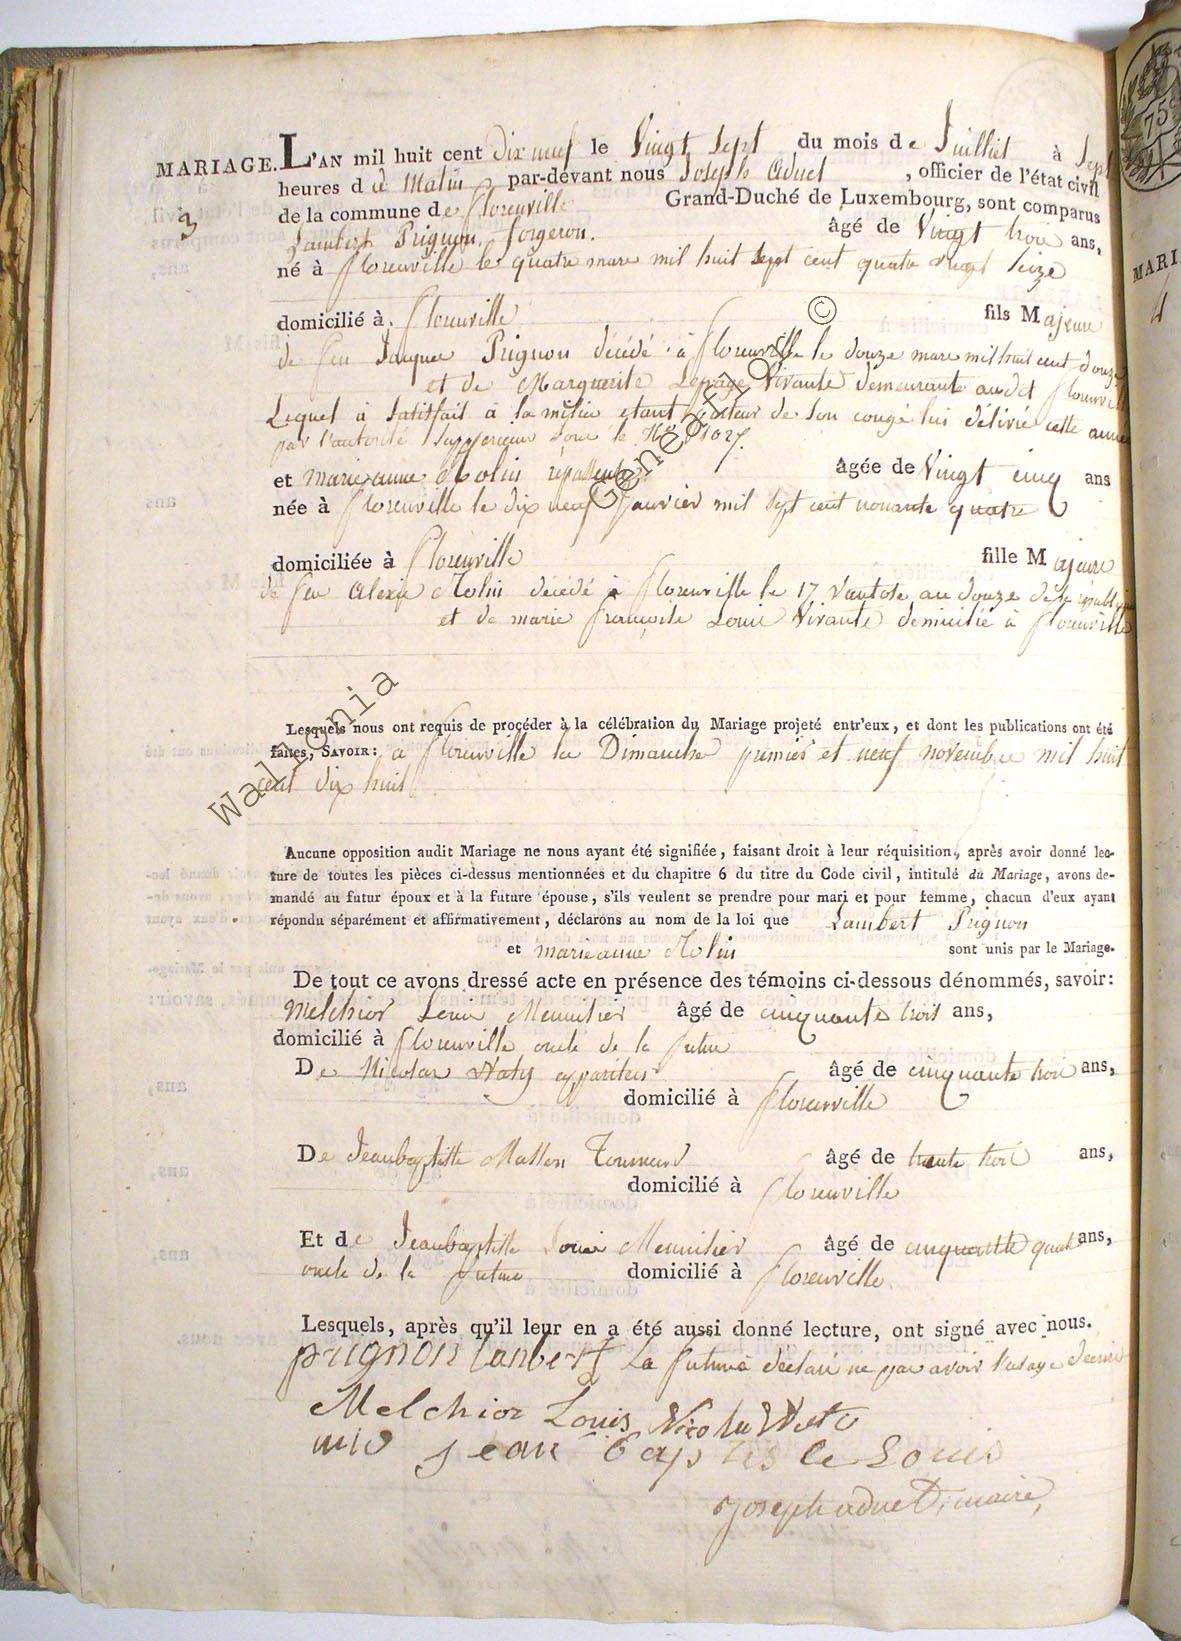 MARIAGE. L'AN mil huit cent dix neuf le Vingt Sept du mois de Juilliet à Sept
heures d u Matin par-devant nous Joseph Aduet , officier de l'état civil
de la commune de florenville Grand-Duché de Luxembourg, sont comparus
3
Lambert Prignon, forgeron. âgé de Vingt trois ans,
né à florenville le quatre mars mil huit sept cent quatre vingt seize
domicilié à florenville fils Majeure
de feu Jacque Prignon décédé à florenville le douze mars mil huit cent douze
et de Marguerite Lepage Vivante demeurante audit florenville
Lequel à satisfait à la milice etant porteur de son congé lui délivré cette année
par l'autorité Supperieur sous le No 1027.
et marie anne Molin âgée de Vingt cinq ans
née à florenville le dix neuf Janvier mil sept cent nonante quatre
domiciliée à florenville fille Majeure
de feu Alexis Molin décédé à florenville le 17 Vantose an douze de la républ
et de marie françoise Louis Vivante domicilié à florenville
Lesquels nous ont requis de procéder à la célébration du Mariage projeté entr'eux, et dont les publications ont été
faites, SAVOIR: à florenville les Dimanche premier et neuf novembre mil huit
cent dix huit
Aucune opposition audit Mariage ne nous ayant été signifiée, faisant droit à leur réquisition, après avoir donné lec-
ture de toutes les pièces ci-dessus mentionnées et du chapitre 6 du titre du Code civil, intitulé du Mariage, avons de-
mandé au futur époux et à la future épouse, s'ils veulent se prendre pour mari et pour femme, chacun d'eux ayant
répondu séparément et affirmativement, déclarons au nom de la loi que Lambert Prignon
et marie anne Molin sont unis par le Mariage.
De tout ce avons dressé acte en présence des témoins ci-dessous dénommés, savoir:
Melchior Louis Menuisier âgé de cinquante trois ans,
domicilié à florenville oncle de la future
De Nicolas Waty appariteur âgé de cinquante trois ans,
domicilié à florenville
De Jeanbaptiste Masson Tourneur âgé de trente trois ans,
domicilié à florenville
Et de Jeanbaptiste Louis Menuisier âgé de cinquante quatre ans,
oncle de la future domicilié à florenville
Lesquels, après qu'il leur en a été aussi donné lecture, ont signé avec nous.
prignon lanbert La future à déclaré ne pas avoir l'usage d'écrire
Melchior Louis Nicolas
jean baptiste Louis
Joseph aduet, maire,
Wallonia Geneafiles ©
75
MARIA
4